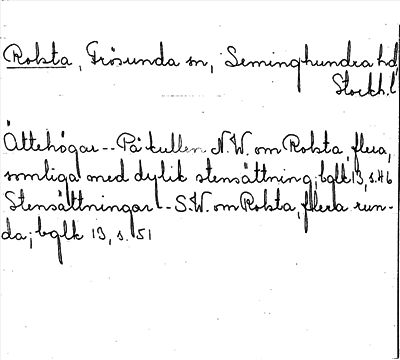 Rolsta, Frösunda sn, Seminghundra hd,
Stockh. l
Ättehögar -- På kullen N.W. om Rolsta, flera,
somliga med dylik stensättning; bglk 13, s. 46
Stensättningar -- S.W. om Rolsta, flera run-
da; bglk 13, s. 51